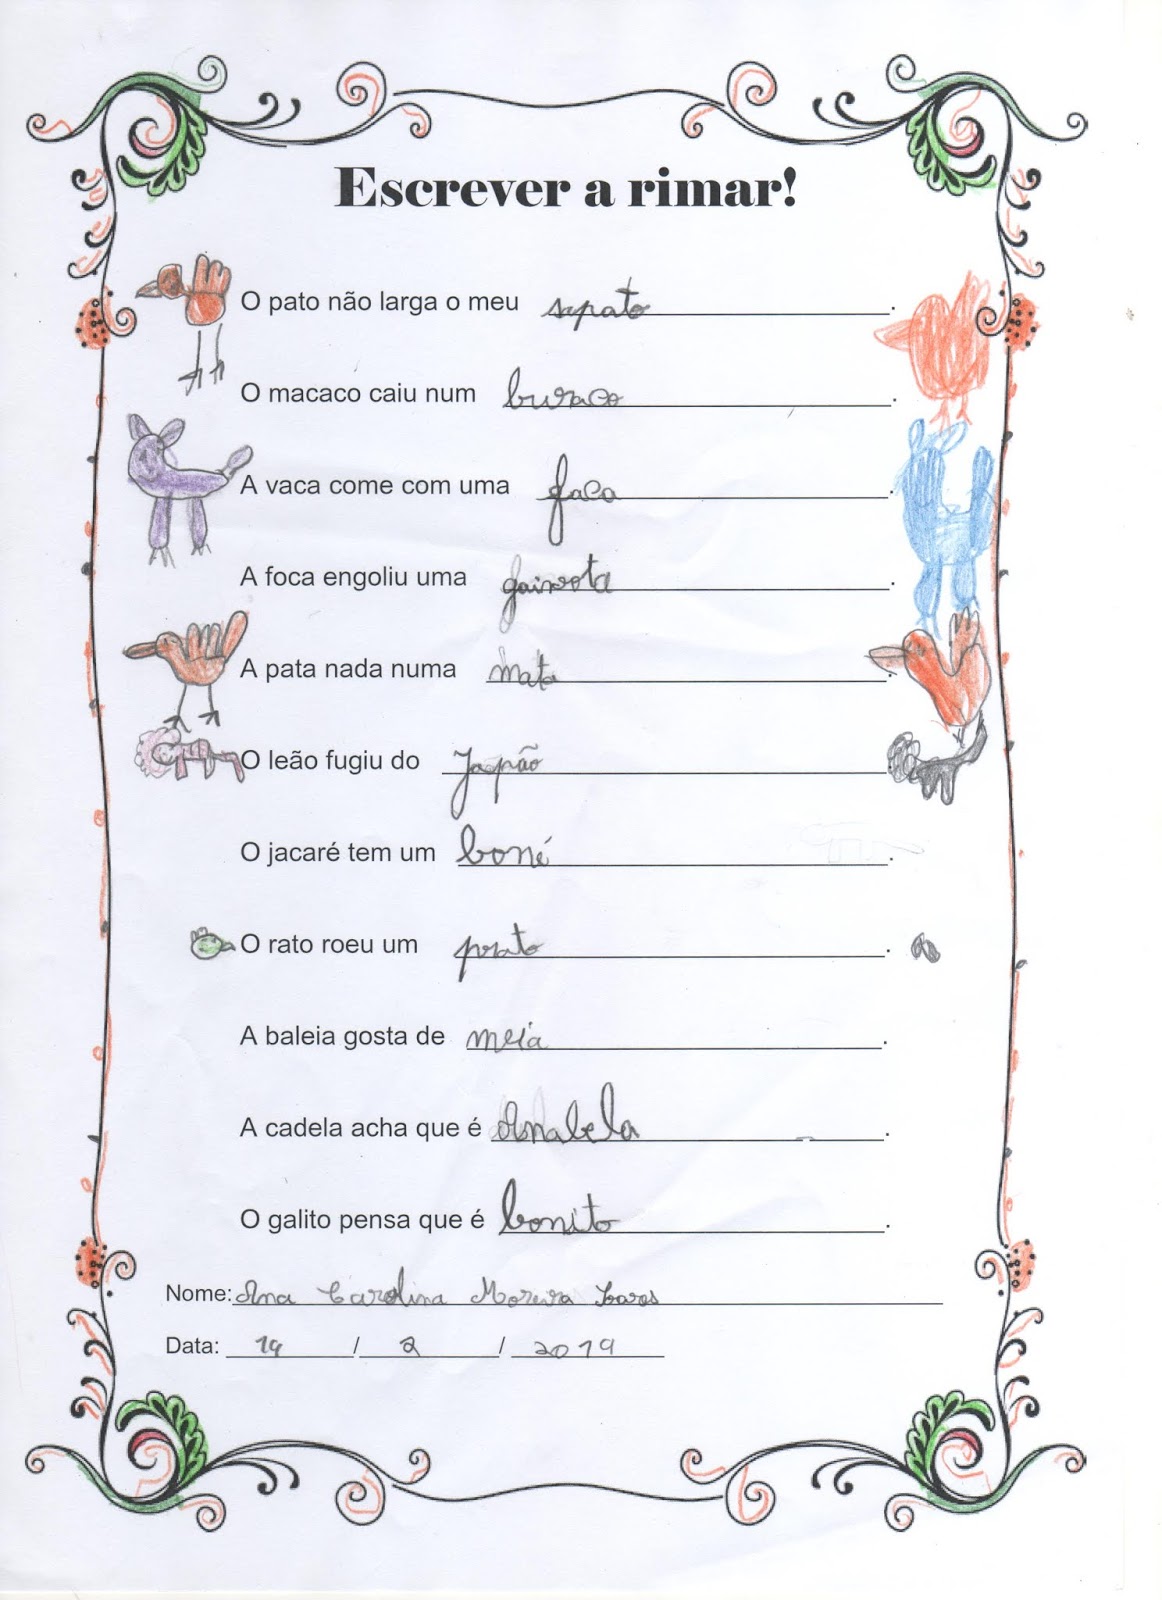 Escrever a rimar!
O pato não larga o meu sapato.
O macaco caiu num buraco.
A vaca come com uma faca.
A foca engoliu uma gaivota.
A pata nada numa mata.
O leão fugiu do Japão.
O jacaré tem um boné.
O rato roeu um prato.
A baleia gosta de meia.
A cadela acha que é Anabela.
O galito pensa que é bonito.
Nome: Ana Carolina Moreira
Data: 19 / 2 / 2019